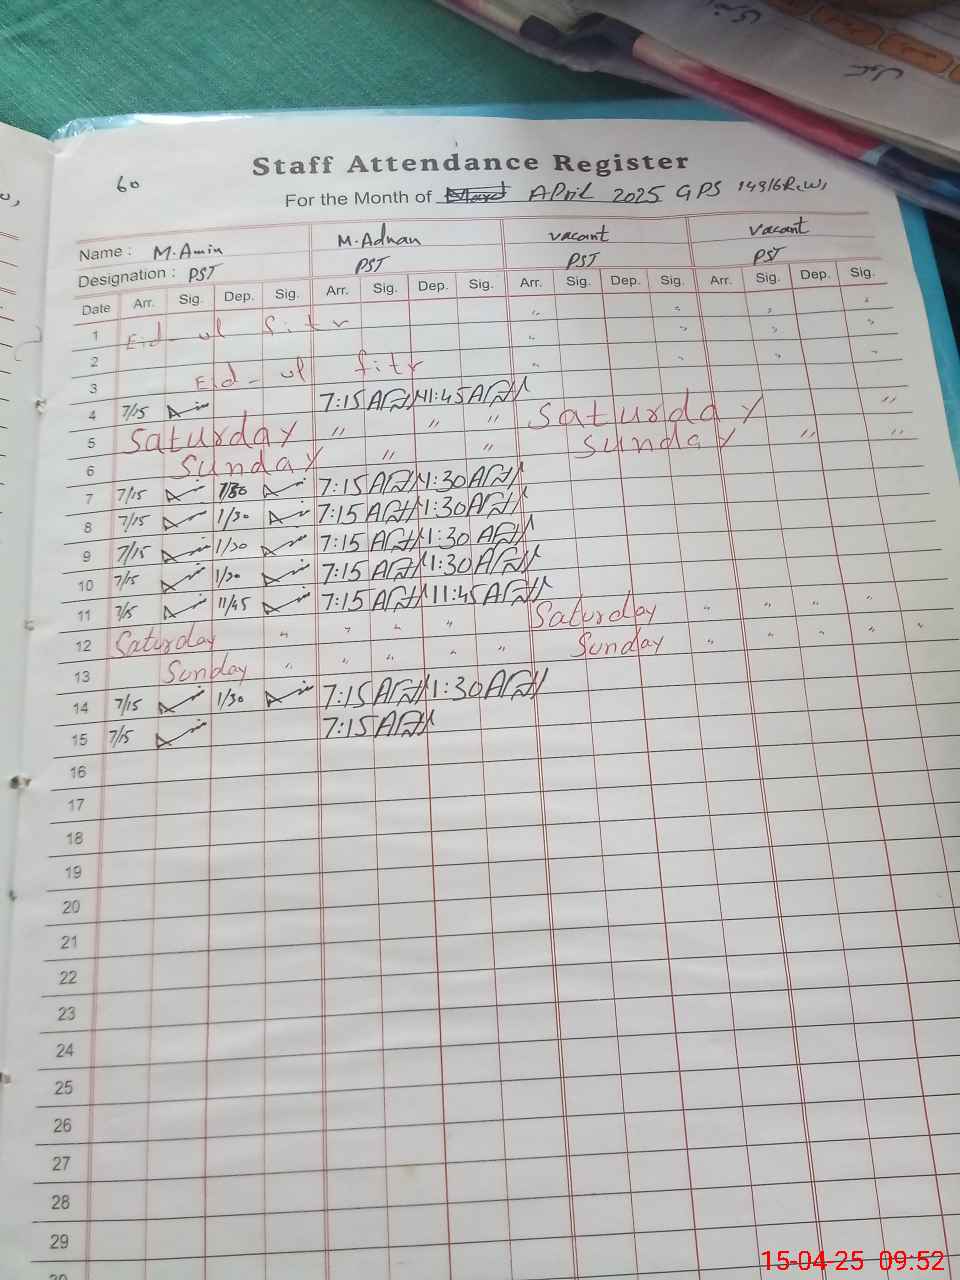 60
Staff Attendance Register
For the Month of April 2025 GPS
Name : M.Amin M.Adnan vacant vacant
Designation : PST PST PST PST
Date Arr. Sig. Dep. Sig. Arr. Sig. Dep. Sig. Arr. Sig. Dep. Sig. Arr. Sig. Dep. Sig.
1 Eid-ul fitr
2
3 Eid-ul fitr
4 7/15 7:15 11:45
5 Saturday " " " Saturday "
6 Sunday " " Sunday " "
7 7/15 1/30 7:15 1:30
8 7/15 1/30 7:15 1:30
9 7/15 1/30 7:15 1:30
10 7/15 1/30 7:15 1:30
11 7/15 11/45 7:15 11:45
12 Saturday " " " " Saturday " " " "
13 Sunday " " " " " Sunday " " " " "
14 7/15 1/30 7:15 1:30
15 7/15 7:15
16
17
18
19
20
21
22
23
24
25
26
27
28
29
15-04-25 09:52